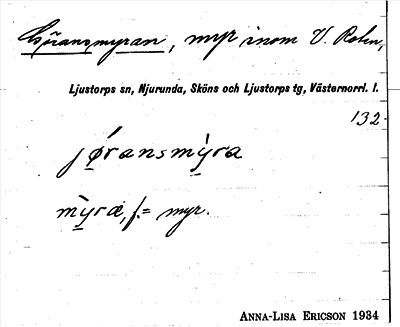 Göransmyran, myr inom V. Rolen,
Ljustorps sn, Njurunda, Sköns och Ljustorps tg, Västernorrl. l.
132
jø̀ransmỳra
mỳra, f. = myr.
ANNA-LISA ERICSON 1934